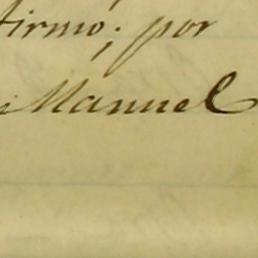 firmo; por
Manuel